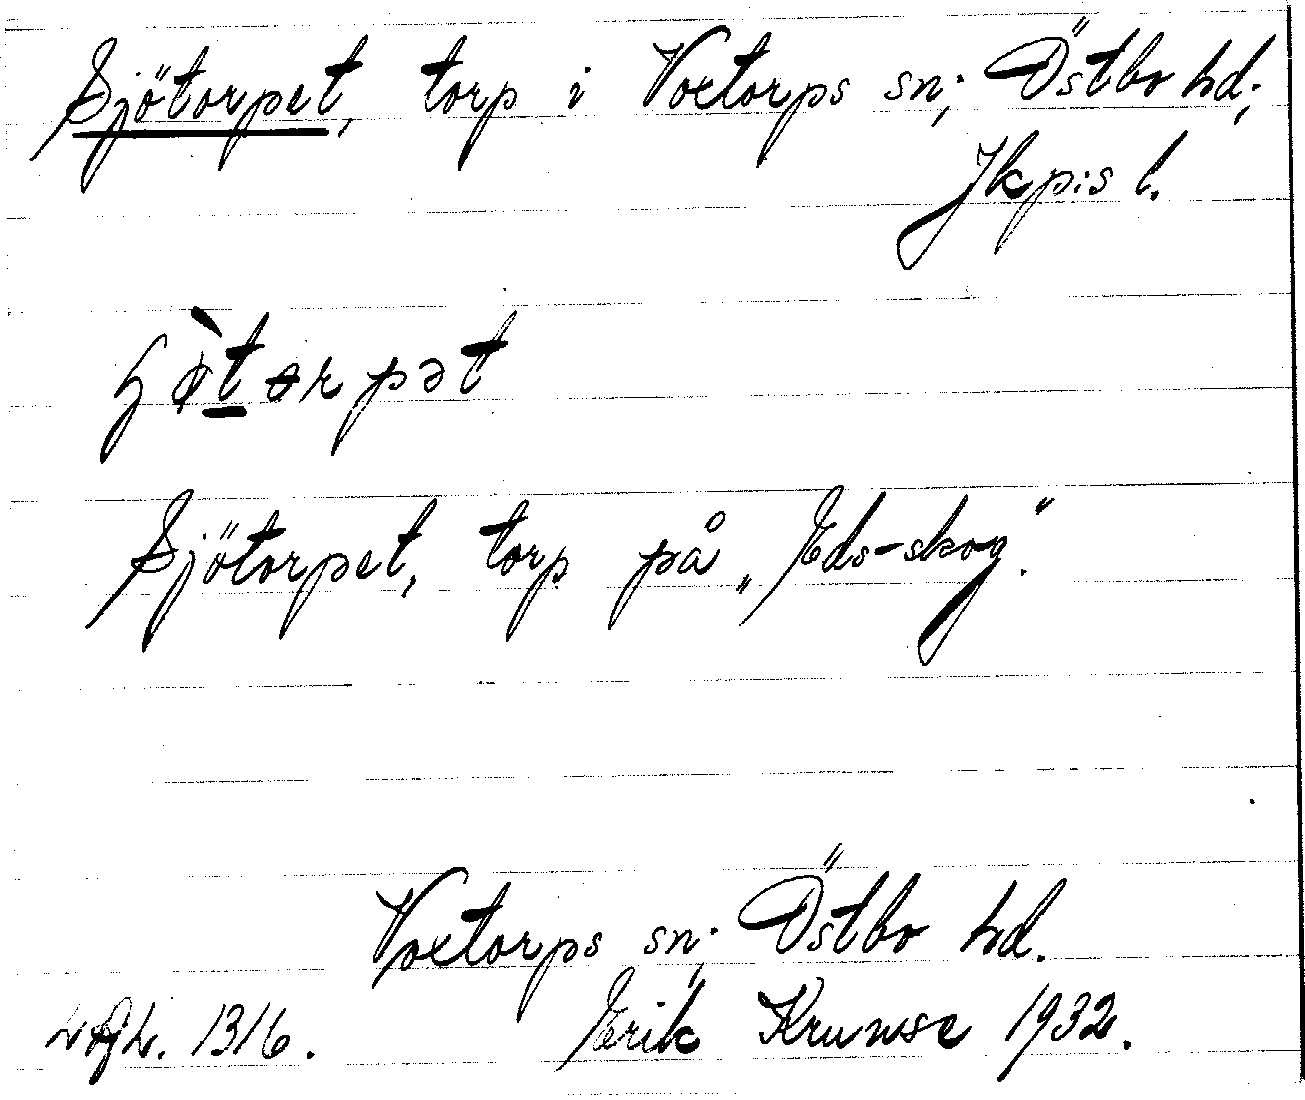 Sjötorpet, torp i Voxtorps sn; Östbo hd;
Jkp:s l.
ɧø̀tɵrpət
Sjötorpet, torp på „Eds-skog".
Voxtorps sn; Östbo hd.
1316. Erik Krunse 1932.